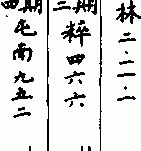 林二·二一·二
期三粹四六六
期四屯南九五二